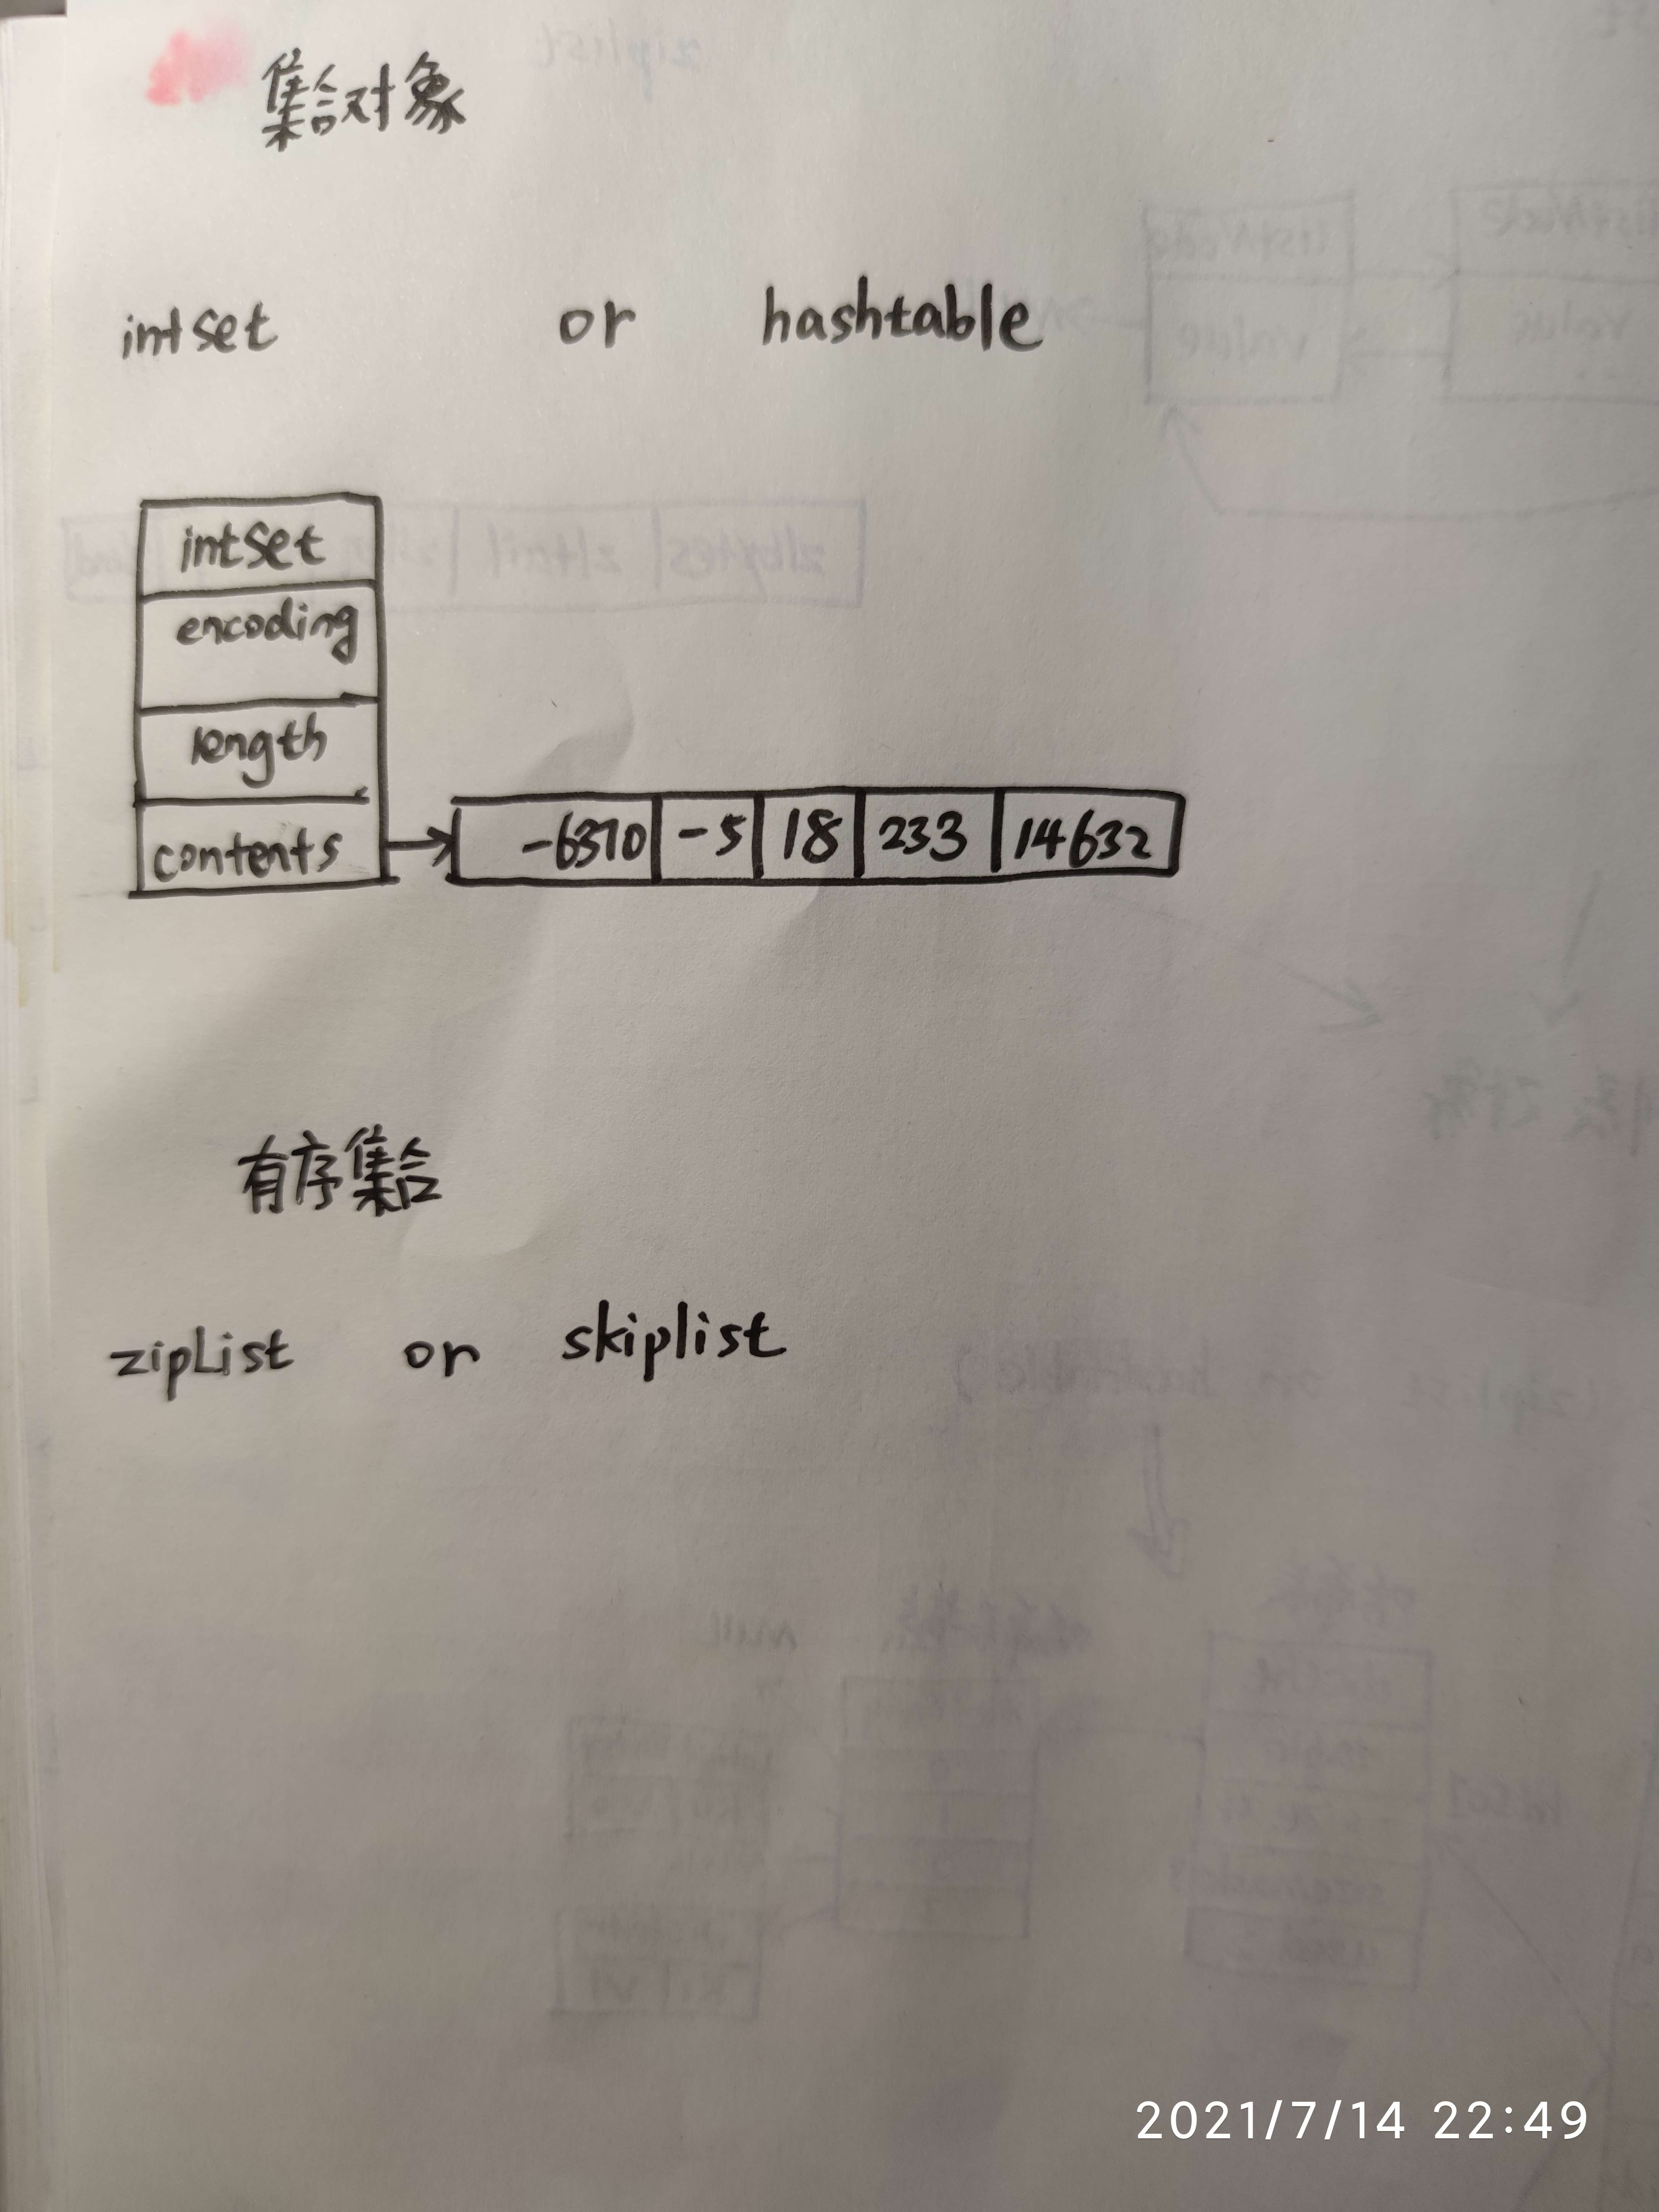 集合对象
intset or hashtable
intset
encoding
length
contents -6370 -5 18 233 14632
有序集合
zipList or skiplist
2021/7/14 22:49